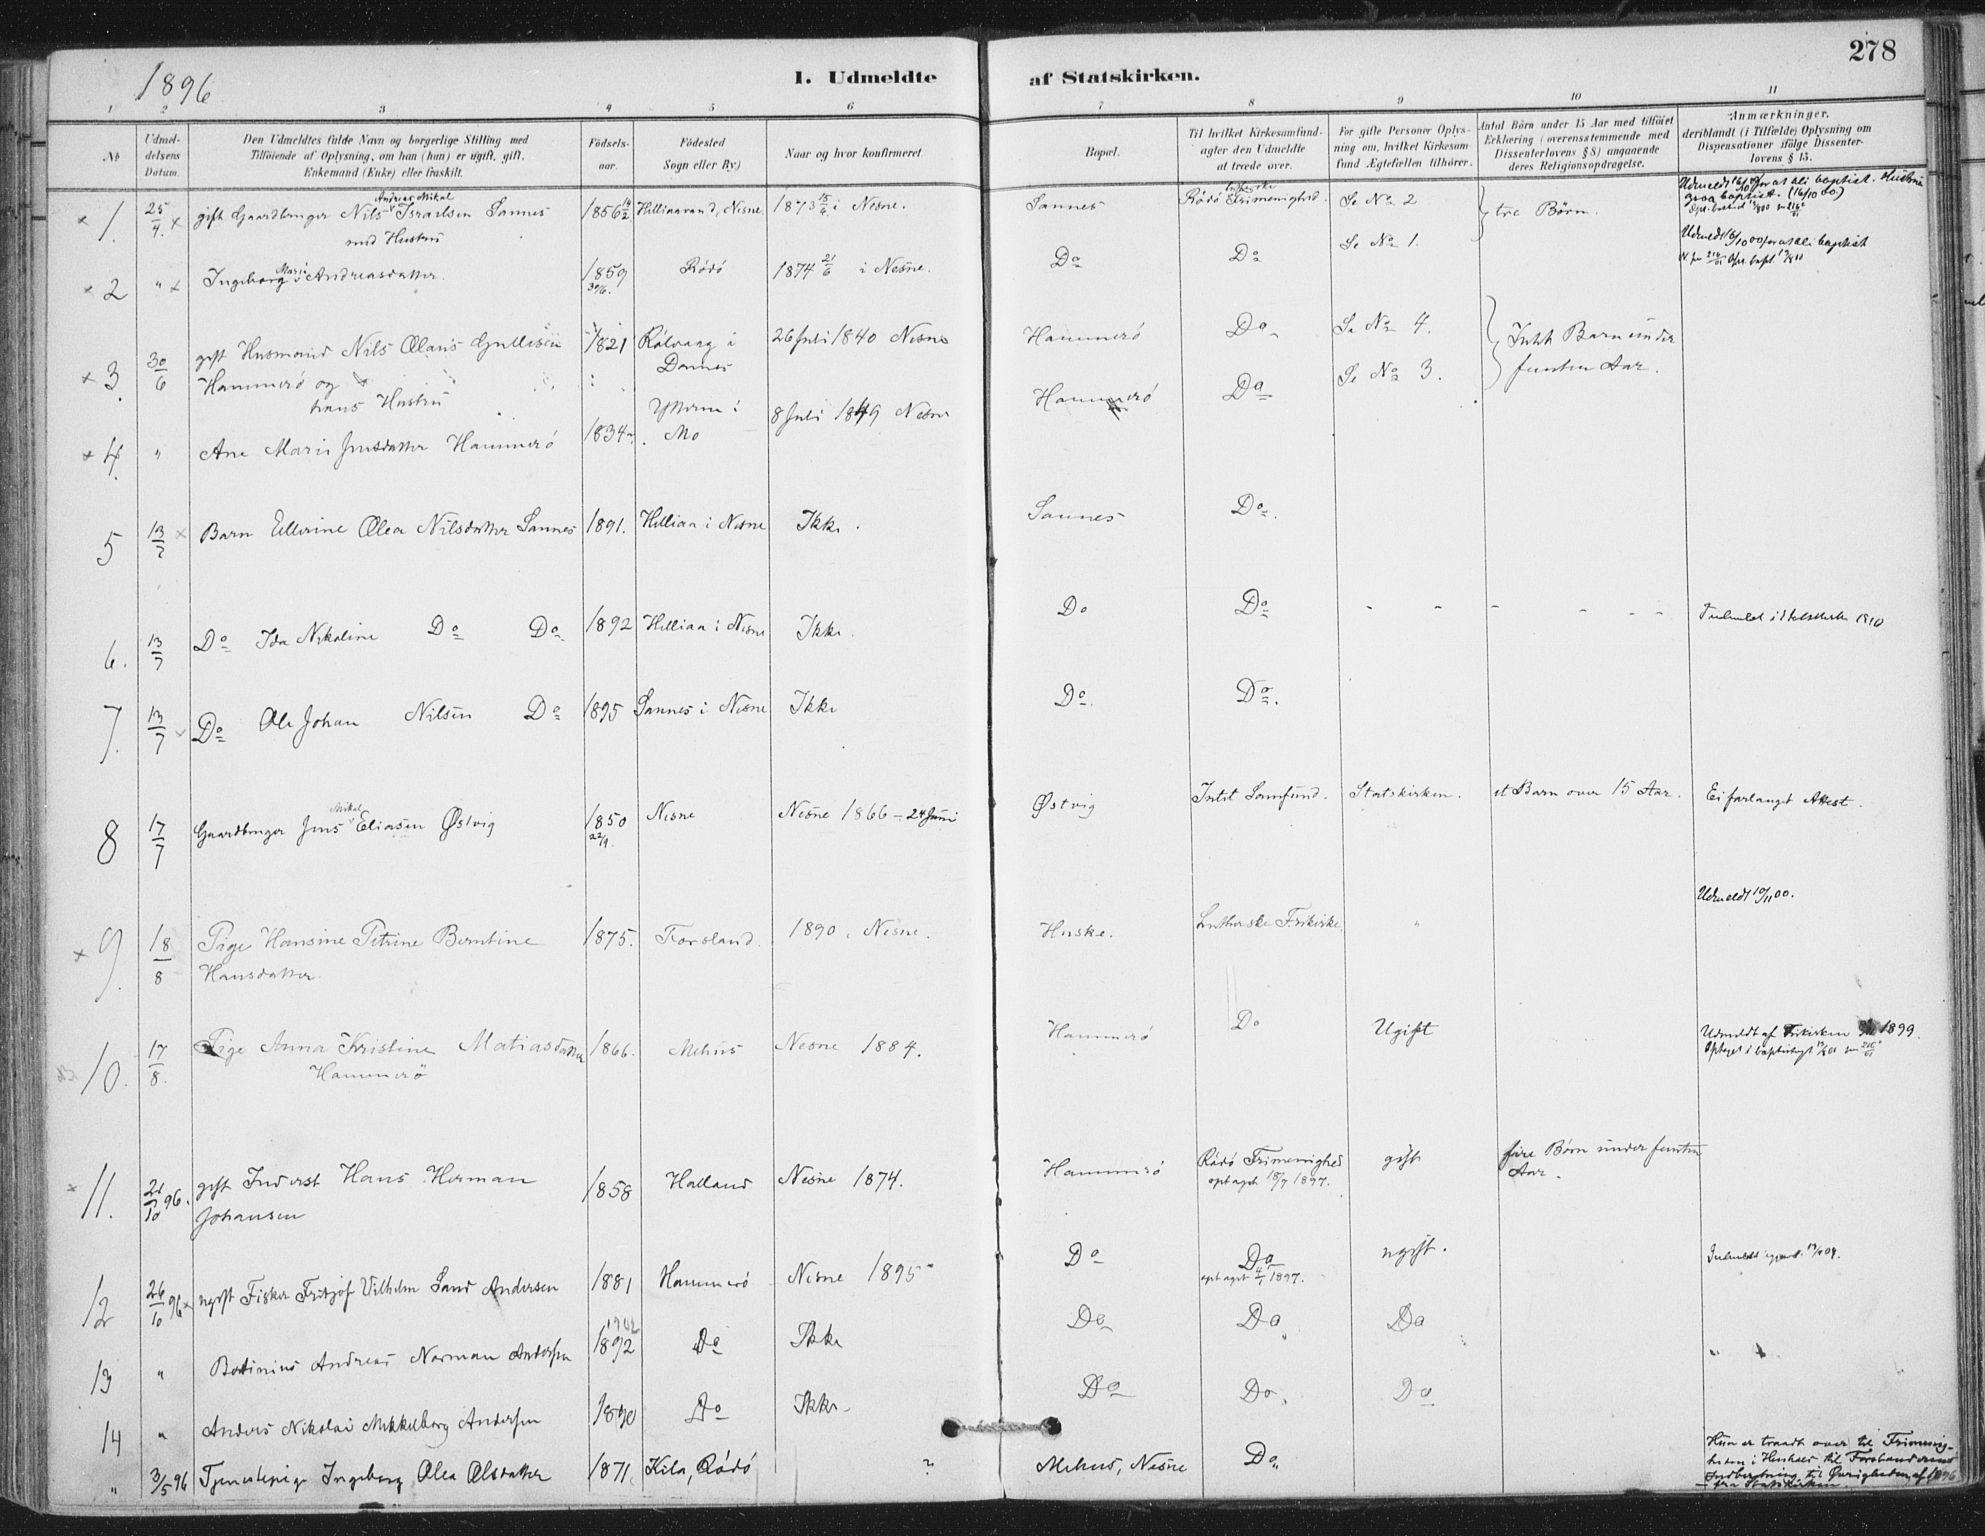 1896
I. Udmeldte af Statskirken.
278
1 2 3 4 5 6 7 8 9 10 11
No
Udmeldelsens Datum.
Den Udmeldtes fulde Navn og borgerlige Stilling med Tilföiende af Oplysning, om han (hun) er ugift, gift, Enkemand (Enke) eller fraskilt.
Födselsaar.
Födested Sogn eller By.)
Naar og hvor konfirmeret
Bopæl.
Til hvilket Kirkesamfund agter den Udmeldte at træde over.
For gifte Personer Oplysning om, hvilket Kirkesamfund Ægtefællen tilhörer.
Antal Börn under 15 Aar med tilföiet Erklæring (overensstemmende med Dissenterlovens § 8) angaaende deres Religionsopdragelse.
Anmærkninger, deriblandt (i Tilfælde) Oplysning om Dispensationer ifölge Dissenterlovens § 15.
1. 25/4 gift Gaardbruger Nils Andreas Mikal Israelsen Sannes med Hustru 1856 Hilliaavand, Nesne. 1873 15/6 i Nesne. Sannes Rödö lutherske Frimenighed. Se No 2 tre Börn.
2 " Ingeborg Marie Andreasdatter. 1859 Rödö 1874 21/6 i Nesne. Do Do Se No 1.
3. 30/6 gift Husmand Nils Olaus Gullesen Hammerö og hans Hustru 1821 Rölvaag i Dønnes 26 Juli 1840 Nesne Hammerö Do Se No 4. Intet Barn under femten Aar.
4. " Ane Marie Jensdatter Hammerö 1834 Ytteren i Mo 8 Juli 1849 Nesne Hammerö Do Se No 3.
5 13/7 Barn Ellerine Olea Nilsdatter Sannes 1891. Hilliaa i Nesne Ikke. Sannes Do.
6. 13/7 Do Ida Nikoline Do Do 1892 Hilliaa i Nesne Ikke. Do Do - - - - - - Indmeldt i Statskirken 1910
7. 13/7 Do Ole Johan Nilsen Do 1895 Sannes i Nesne Ikke Do Do.
8 17/7 Gaardbruger Jens Mikal Eliasen Østvig 1850 22/9. Nesne Nesne 1866 - 24 Juni Østvig Intet Samfund. Statskirken. et Barn over 15 Aar. Ei forlangt Attest.
9. 18/8 Pige Hansine Petrine Berntine Hansdatter 1875. Forsland. 1890. Nesne. Huske. Lutherske Frikirke " Udmeldt 10/11 00.
10. 17/8. Pige Anna Kristine Matiasdatter Hammerö 1866. Mehus Nesne 1884. Hammerö Do Ugift Udmeldt af Frikirken 1899.
11. 21/10 96. gift Inderst Hans Herman Johansen 1858 Halland Nesne 1874. Hammerö Rödö Frimenighed optaget 18/7 1897. gift fire Börn under femten Aar.
12 26/10 96 ugift Fisker Fritjof Vilhelm Sand Andersen 1881 Hammerö Nesne 1895 Do Do optaget 4/1 1897. ugift.
13 " Botinius Andreas Norman Andersen 1892 Do Ikke Do Do Do "
14 " Anders Nikolai Mikkelborg Andersen 1890 Do Ikke. Do Do. Do
" 3/5 96 Tjenestepige Ingeborg Olea Olsdatter 1871. Kila, Rödö ? Mehus, Nesne Do. Hun er traadt over til Frimenigheden i Henhold til Forstanderens Indberetning til Øvrigheden af 1896 fra Statskirken.